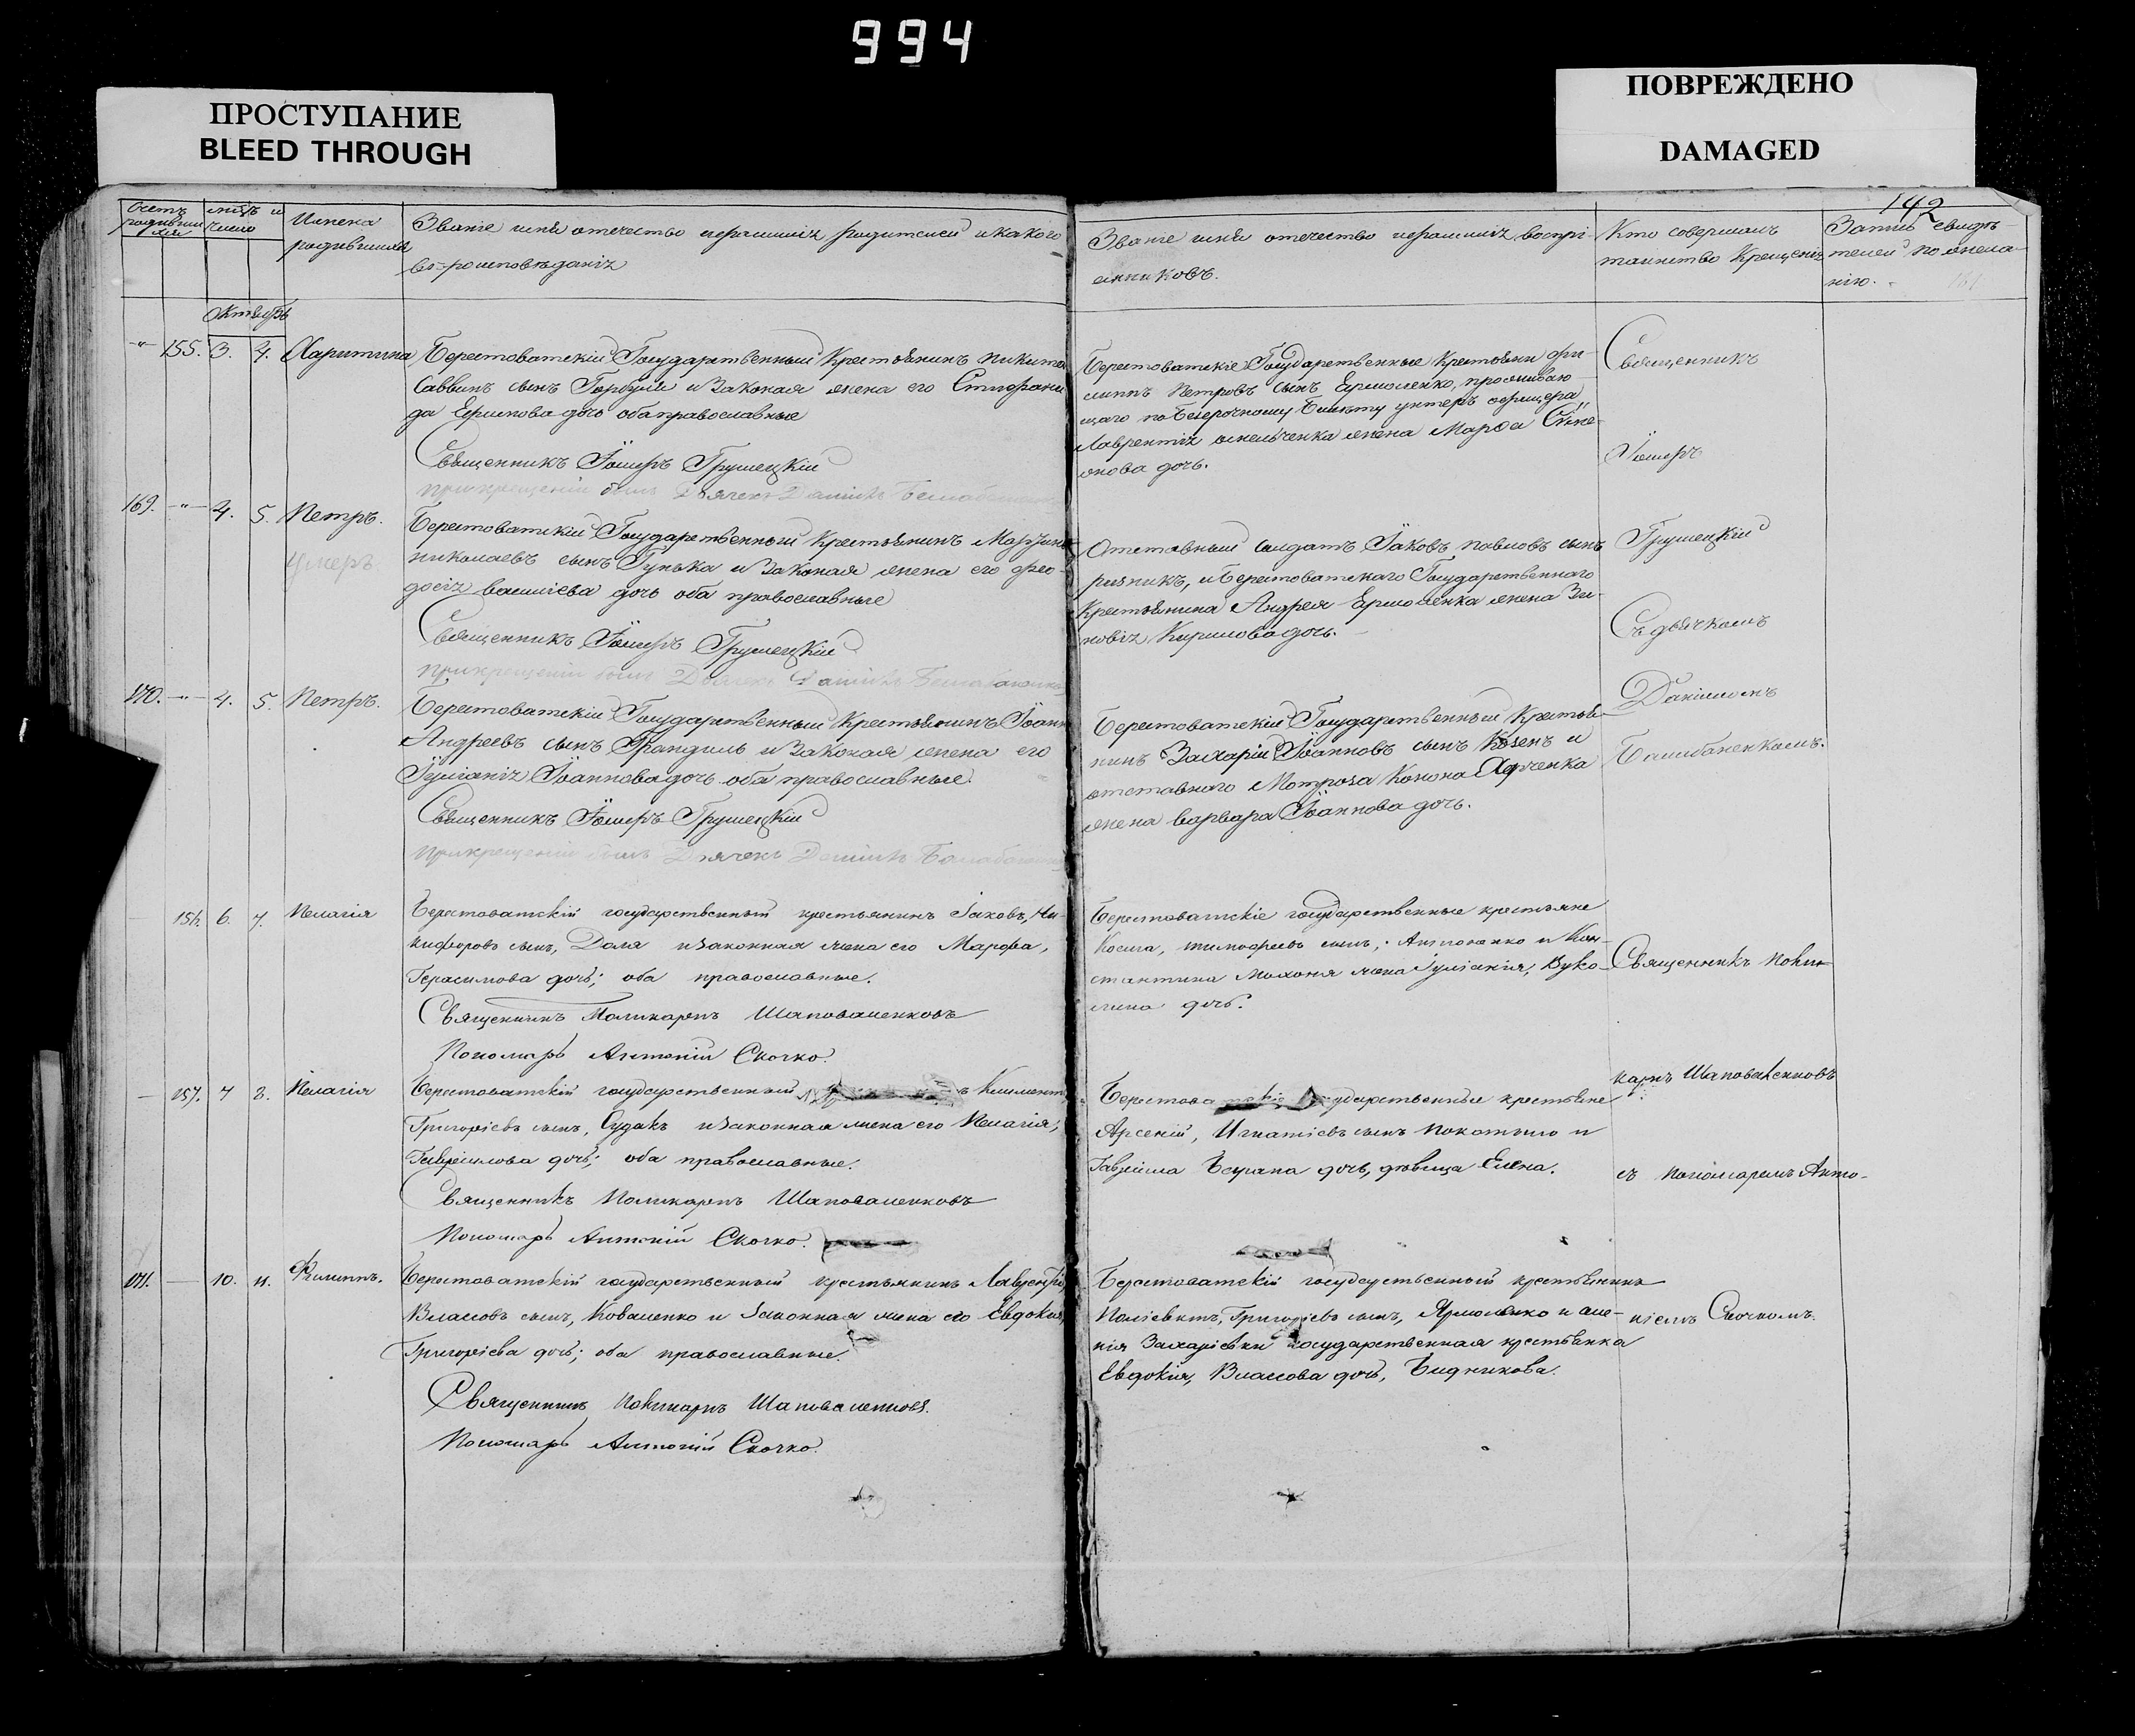 994
ПРОСТУПАНИЕ
BLEED THROUGH
ПОВРЕЖДЕНО
DAMAGED
142
Счетъ родившихся
мѣсяцъ и число
Имена родившихся
Званіе имя отечество и фамилія родителей и какого
вѣроисповѣданія
Званіе имя отечество и фамилія воспрі-
емниковъ.
Кто совершалъ
таинство Крещенія
Запись свидѣ-
телей по жела-
нію.
Октябрь
155. 3. 4. Харитина
Берестоватскій Государственный Крестьянинъ Никита
Саввинъ сынъ и Законая жена его Стефани
да дочь оба православные
Священникъ Іосифъ Грушецкій
при крещеніи былъ Дьячекъ Даніилъ
Берестоватскіе Государственные Крестьяни Фи-
липпъ Петровъ сынъ Ермоленко, проживаю
щаго по Безсрочному Билету унтеръ офицера
Лаврентія жена Марѳа
дочь.
Священникъ
Іосифъ
Грушецкій
Съ дьячкомъ
Даніиломъ
169. 4. 5. Петръ.
Умеръ.
Берестоватскій Государственный Крестьянинъ
николаевъ сынъ Гунька и Законая жена его Фео-
досія василіева дочь оба православные
Священникъ Іосифъ Грушецкій
при крещеніи былъ Дьячекъ Даніилъ
Отставный солдатъ Іаковъ павловъ сынъ
ризникъ, и Берестоватскаго Государственнаго
Крестьянина Андрея Ермоленка жена Зи-
новія Кирилова дочь.
170. 4. 5. Петръ.
Берестоватскій Государственный Крестьянинъ Іоаннъ
Андреевъ сынъ и Законая жена его
Іуліанія Іоаннова дочь оба православные.
Священникъ Іосифъ Грушецкій
при крещеніи былъ Дьячекъ Даніилъ
Берестоватскій Государственный Крестья-
нинъ Захарій Іоанновъ сынъ и
отставного Матроза Конона
жена варвара Іоаннова дочь.
156. 6. 7. Пелагія
Берестоватскій государственный крестьянинъ Іаковъ, Ни-
кифоровъ сынъ, Доля и законная жена его Марфа,
Герасимова дочь; оба православные.
Священникъ Поликарпъ Шаповаленковъ
Пономарь Антоній Скочко.
Берестоватскіе государственные крестьяне
Косма, тимофеевъ сынъ, Антоненко и Кон-
стантина Махоня жена Іуліанія, Вуко-
лина дочь.
Священникъ Поли-
карпъ Шаповаленковъ
съ пономаремъ Анто-
ніемъ Скочкомъ.
157. 7 8. Пелагія
Берестоватскій государственный Климентъ
Григоріевъ сынъ, Судакъ и законная жена его Пелагія,
Гавріилова дочь; оба православные.
Священникъ Поликарпъ Шаповаленковъ
Пономарь Антоній Скочко.
Берестоватскіе государственные крестьяне
Арсеній, Игнатіевъ сынъ Покотыло и
Гавріила дочь, дѣвица Елена.
171. 10. 11. Филиппъ.
Берестоватскій государственный крестьянинъ Лаврентій,
Власовъ сынъ, Коваленко и законная жена его Евдокія,
Григоріева дочь; оба православные.
Священникъ Поликарпъ Шаповаленковъ.
Пономарь Антоній Скочко.
Берестоватскій государственный крестьянинъ
Поліевктъ, Григоріевъ сынъ, Ярмоленко и
Захаріевки государственная крестьянка
Евдокія, Власова дочь, Бидникова.